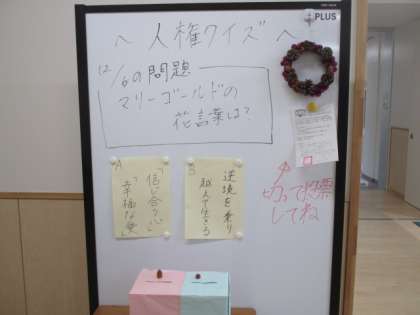 PLUS
～人権クイズ～
12/6の問題
マリーゴールドの
花言葉は?
A
「信じ合う心」
「幸福な愛」
B
逆境を乗り
越えて生きる
切って投票
してね